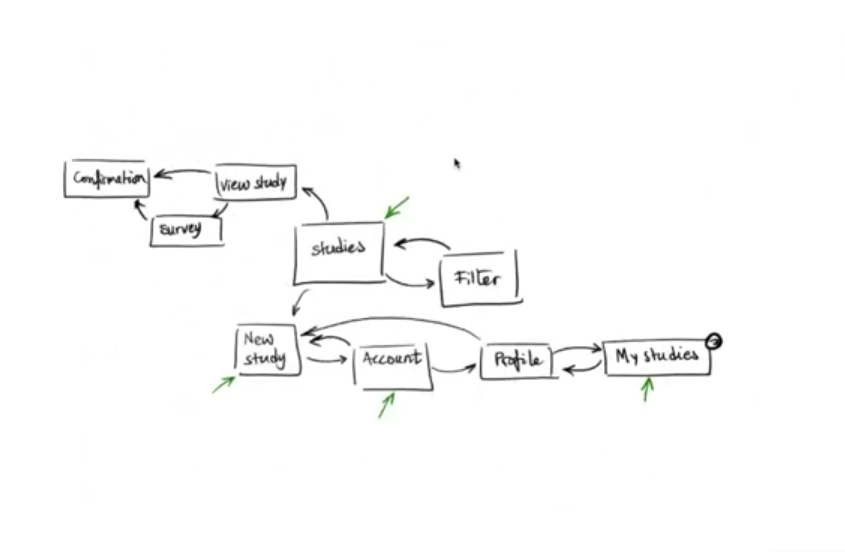 Confirmation
View study
survey
studies
Filter
New
study
Account
Profile
My studies